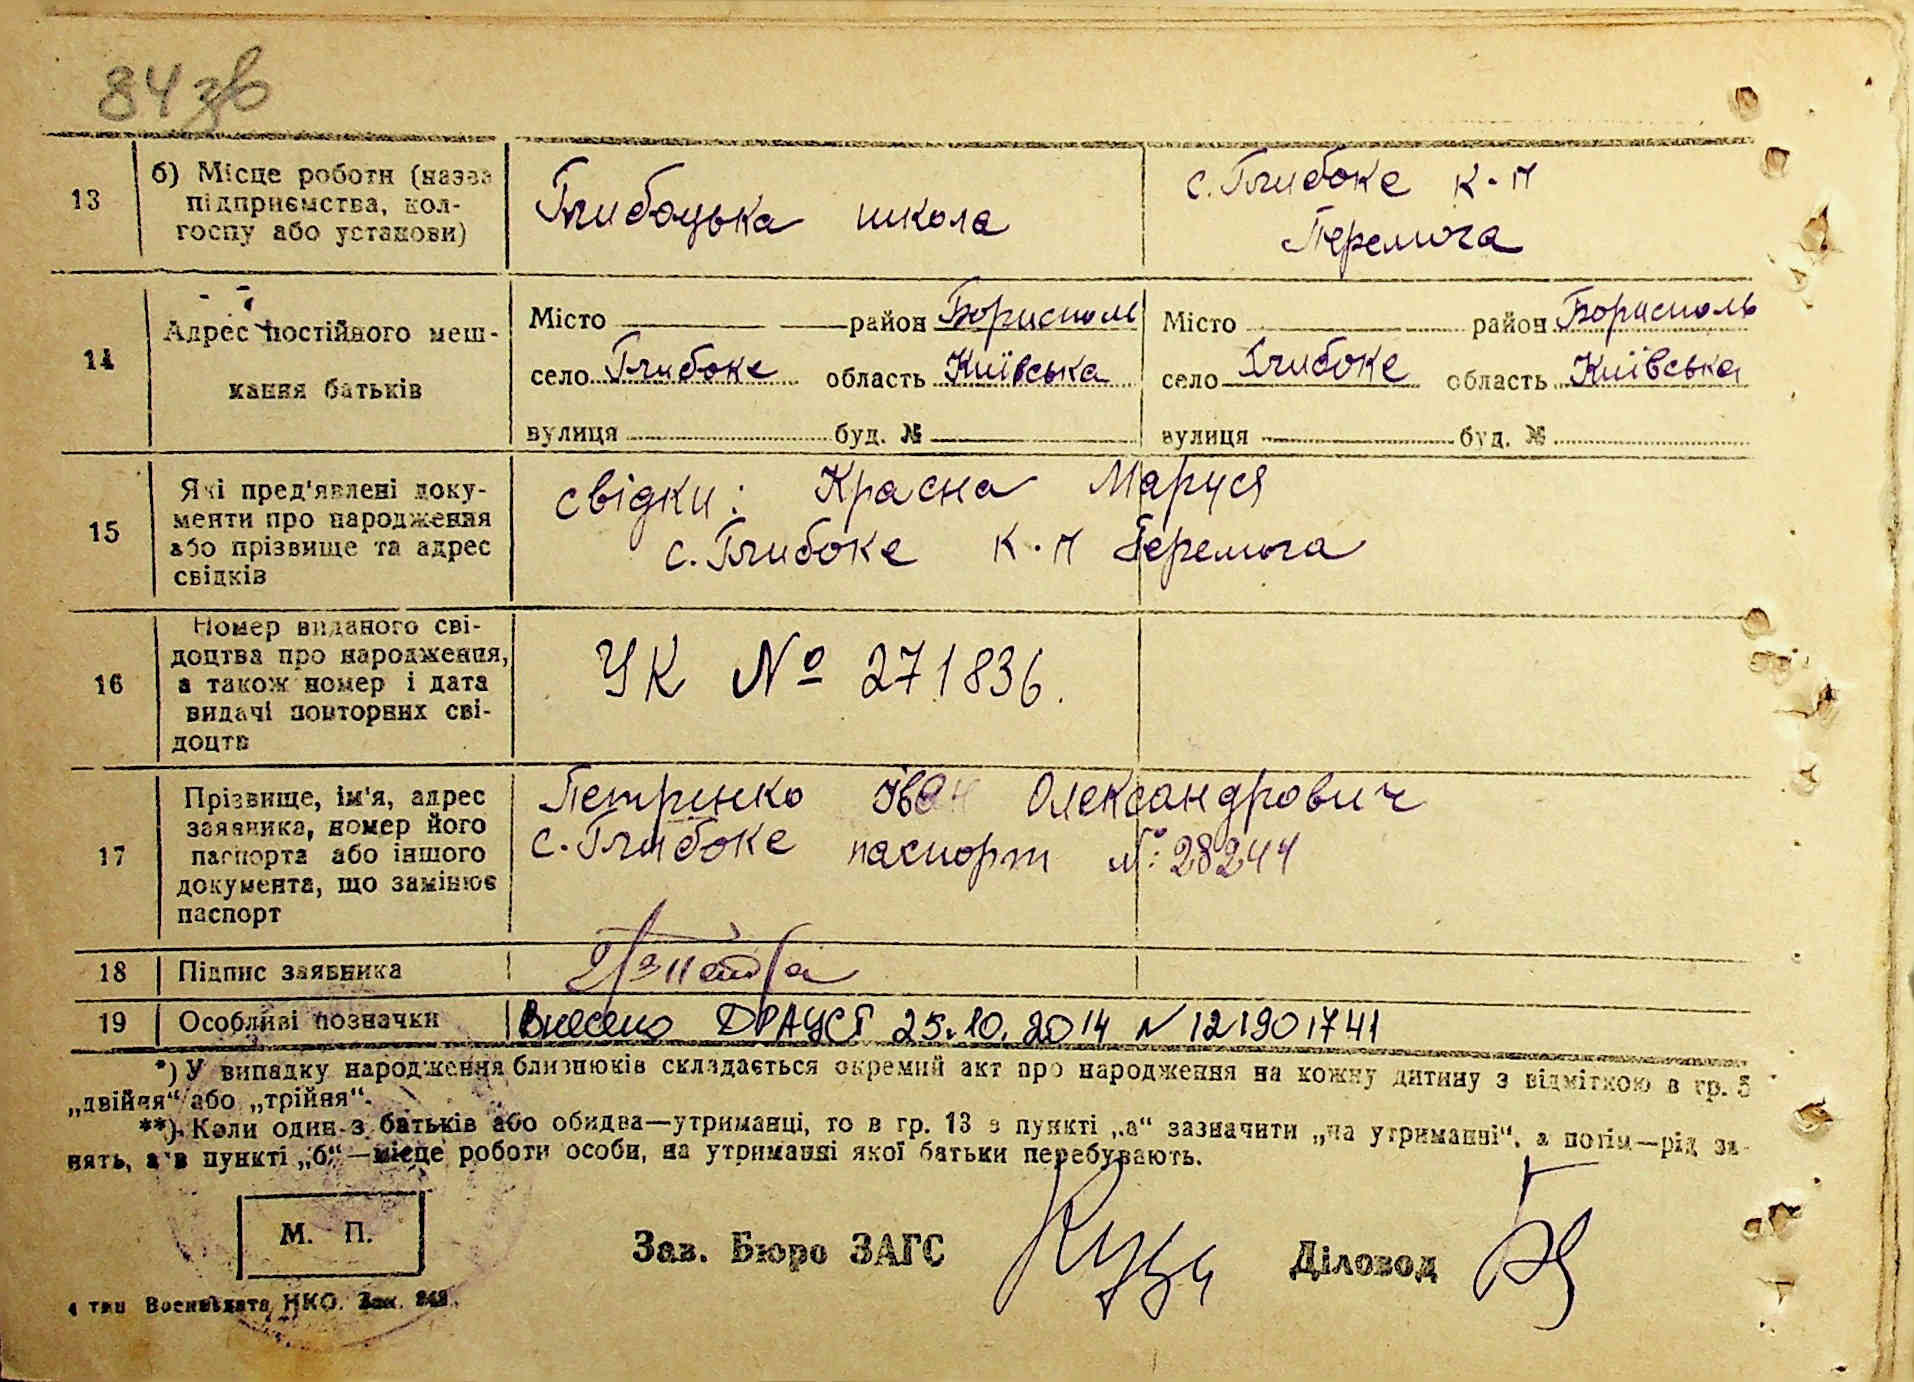 84 зв
13
б) Місце роботи (назва
підприємства, кол-
госпу або установи)
Глибоцька школа
с. Глибоке к-п
Перемога
14
Адрес постійного меш-
кання батьків
Місто район Бориспол
село Глибоке область Київська
вулиця буд. №
Місто район Бориспол
село Глибоке область Київська
вулиця буд. №
15
Які пред'явлені доку-
менти про народження
або прізвище та адрес
свідків
свідки: Красна Маруся
с. Глибоке к-п Перемога
16
Номер виданого сві-
доцтва про народження,
а також номер і дата
видачі повторних сві-
доцтв
УК № 271836.
17
Прізвище, ім'я, адрес
заявника, номер його
паспорта або іншого
документа, що замінює
паспорт
Петренко Іван Олександрович
с. Глибоке паспорт №: 28244
18
Підпис заявника
19
Особливі позначки
Внесено ДРАЦСГ 25.10.2014 N 121901741
*) У випадку народження близнюків складається окремий акт про народження на кожну дитину з відміткою в гр. 5
„двійня“ або „трійня“.
**) Коли один з батьків або обидва—утриманці, то в гр. 13 в пункті „а“ зазначити „на утриманні“, а потім—рід за-
нять, а в пункті „б“—місце роботи особи, на утриманні якої батьки перебувають.
М. П.
Зав. Бюро ЗАГС
Діловод
4 тип Воениздата НКО. Зак. 248.